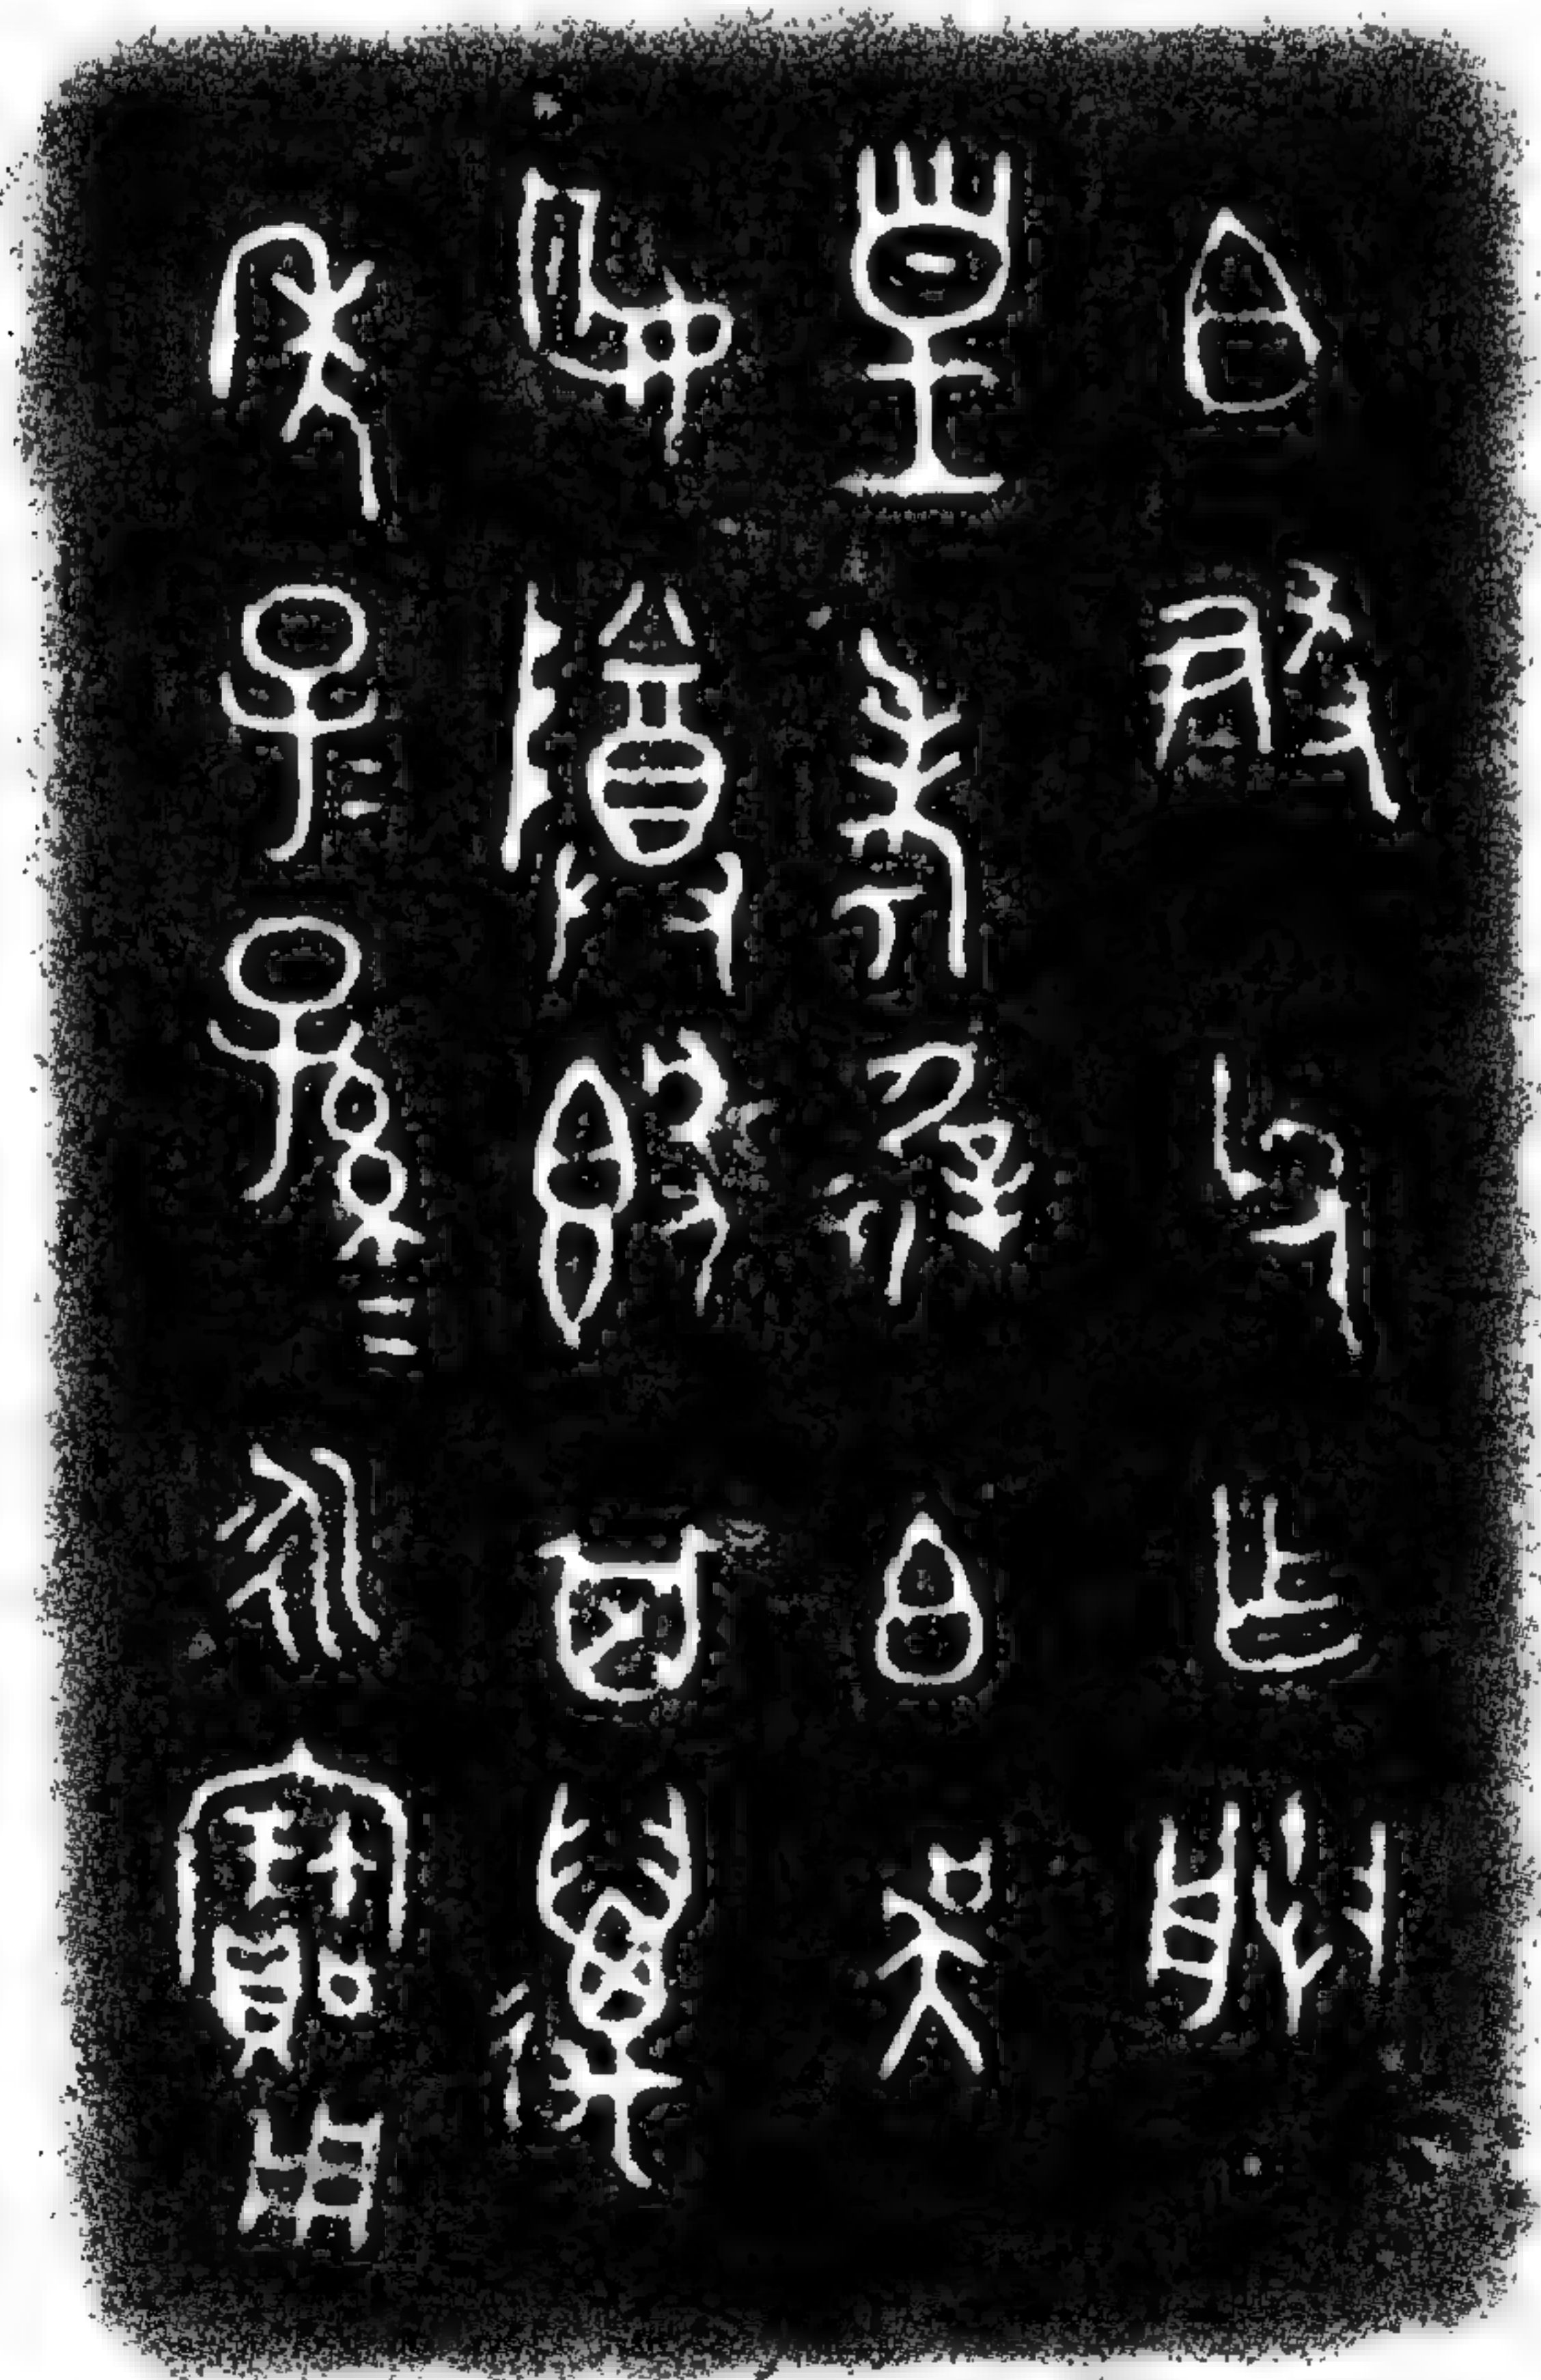 白頵父乍朕
皇考屖白吳
姬𣪘其萬
年子=孫=永寶用